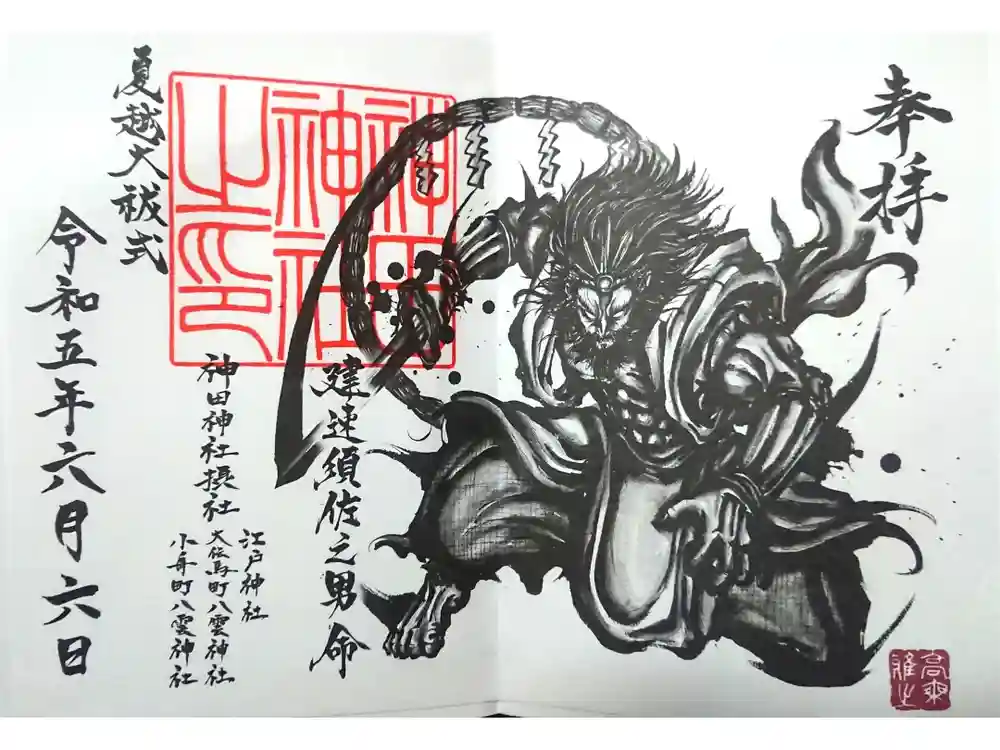 奉拝
建速須佐之男命
江戸神社
大伝馬町八雲神社
小舟町八雲神社
神田神社摂社
神田神社之印
夏越大祓式
令和五年六月六日